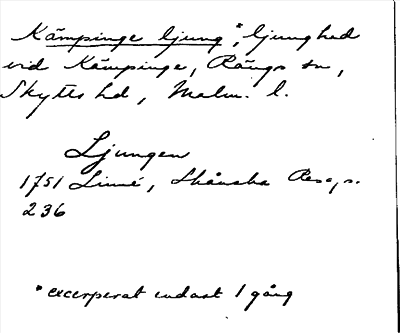 Kämpinge ljung*, ljunghed
vid Kämpinge, Rängs sn,
Skytts hd, Malm. l.
Ljungen
1751 Linné, Skånska Resa, s.
236
* excerperat endast 1 gång